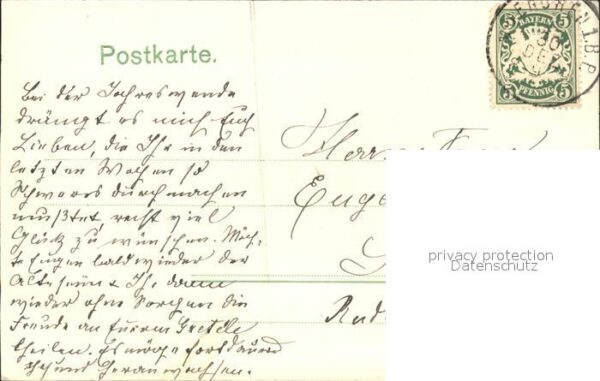 Postkarte.
BAYERN
5 5
30
DEZ
5 PFENNIG 5
1.B.P.
Bei der Jahreswende
drängt es mich Euch
Lieben, die Ihr in den
letzten Wochen so
Schweres durchmachen
mußtet, recht viel
Glück zu wünschen. Möch-
te Eugen bald wieder der
Alte sein & Ihr dann
wieder ohne Sorgen die
Freude an Eurem Gretele
theilen. Es möge fortdauernd
gesund heranwachsen.
Herrn
Euge
privacy protection
Datenschutz